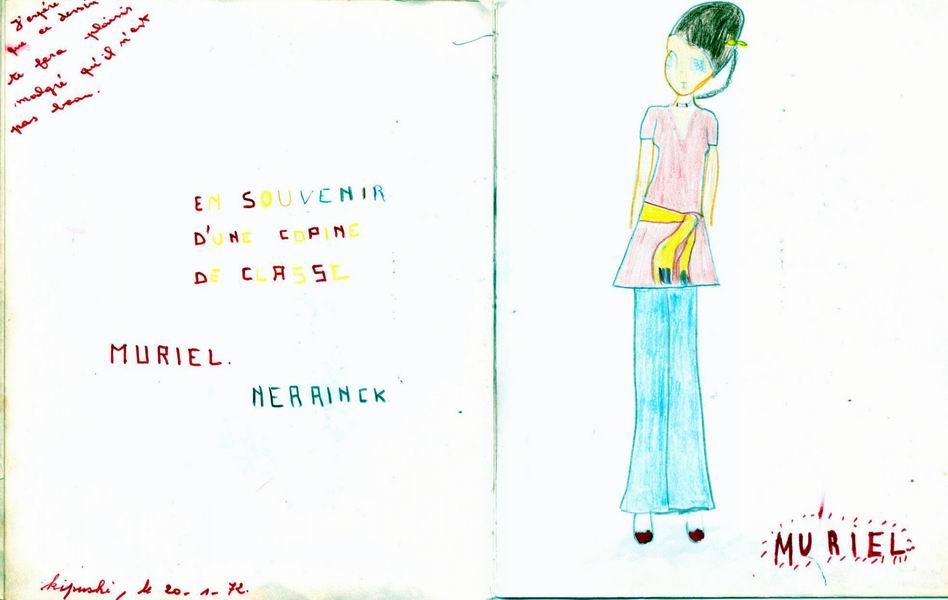 J'espère
que ce dessin
te fera plaisir
malgré qu'il n'est
pas beau.
EN SOUVENIR
D'UNE COPINE
DE CLASSE
MURIEL.
NERRINCK
Kipushi, le 20-1-72.
MURIEL